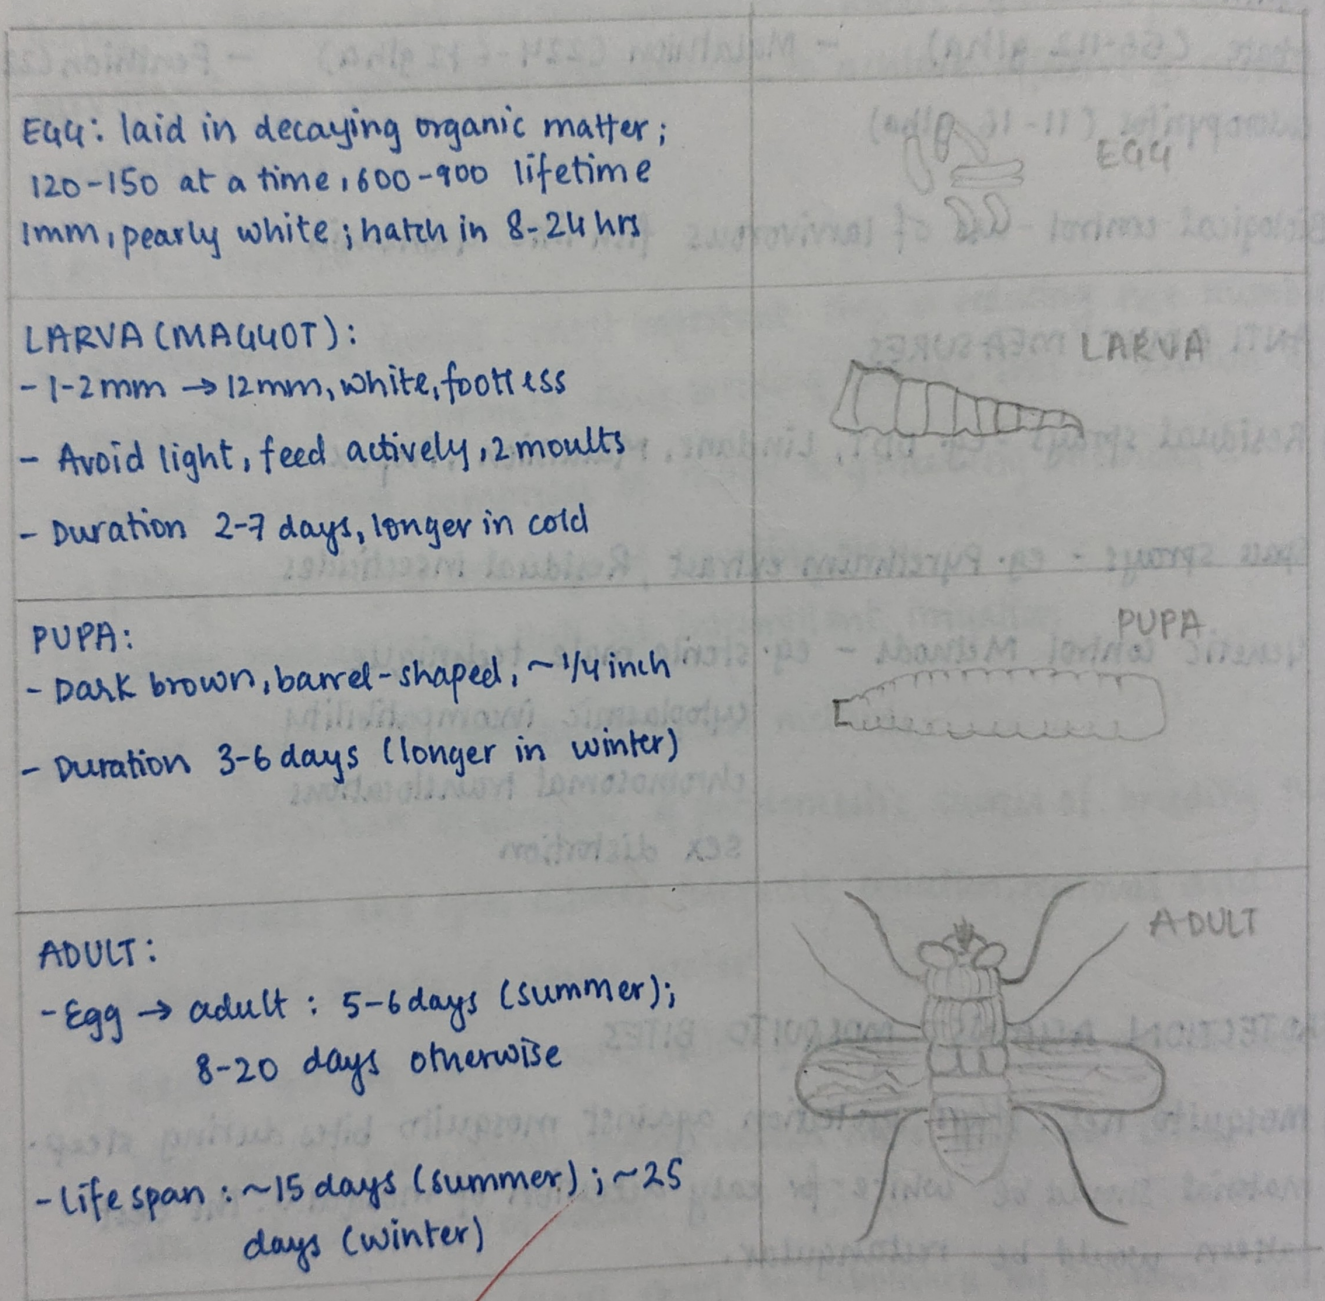 EGG: laid in decaying organic matter;
120-150 at a time, 600-900 lifetime
1mm, pearly white; hatch in 8-24 hrs
EGG
LARVA (MAGGOT):
- 1-2mm → 12mm, white, footless
- Avoid light, feed actively, 2 moults
- Duration 2-7 days, longer in cold
LARVA
PUPA:
- Dark brown, barrel-shaped, ~1/4 inch
- Duration 3-6 days (longer in winter)
PUPA
ADULT:
- Egg → adult: 5-6 days (summer);
8-20 days otherwise
- Life span: ~15 days (summer); ~25
days (winter)
ADULT